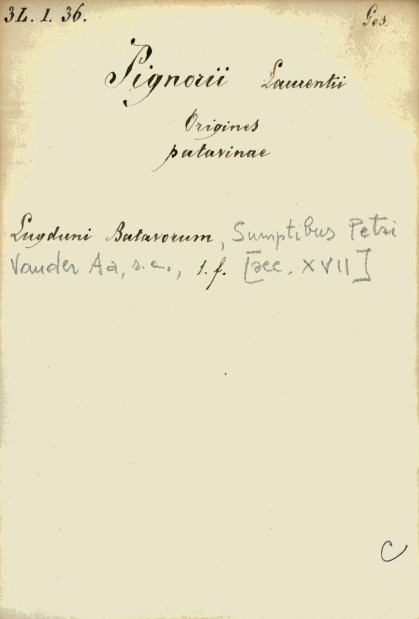 3L. 1. 36.
Ges.
Pignorii Laurentii
Origines
patavinae
Lugduni Batavorum, Sumptibus Petri
Vander Aa, s.a., 1. f. [sec. XVII]
C